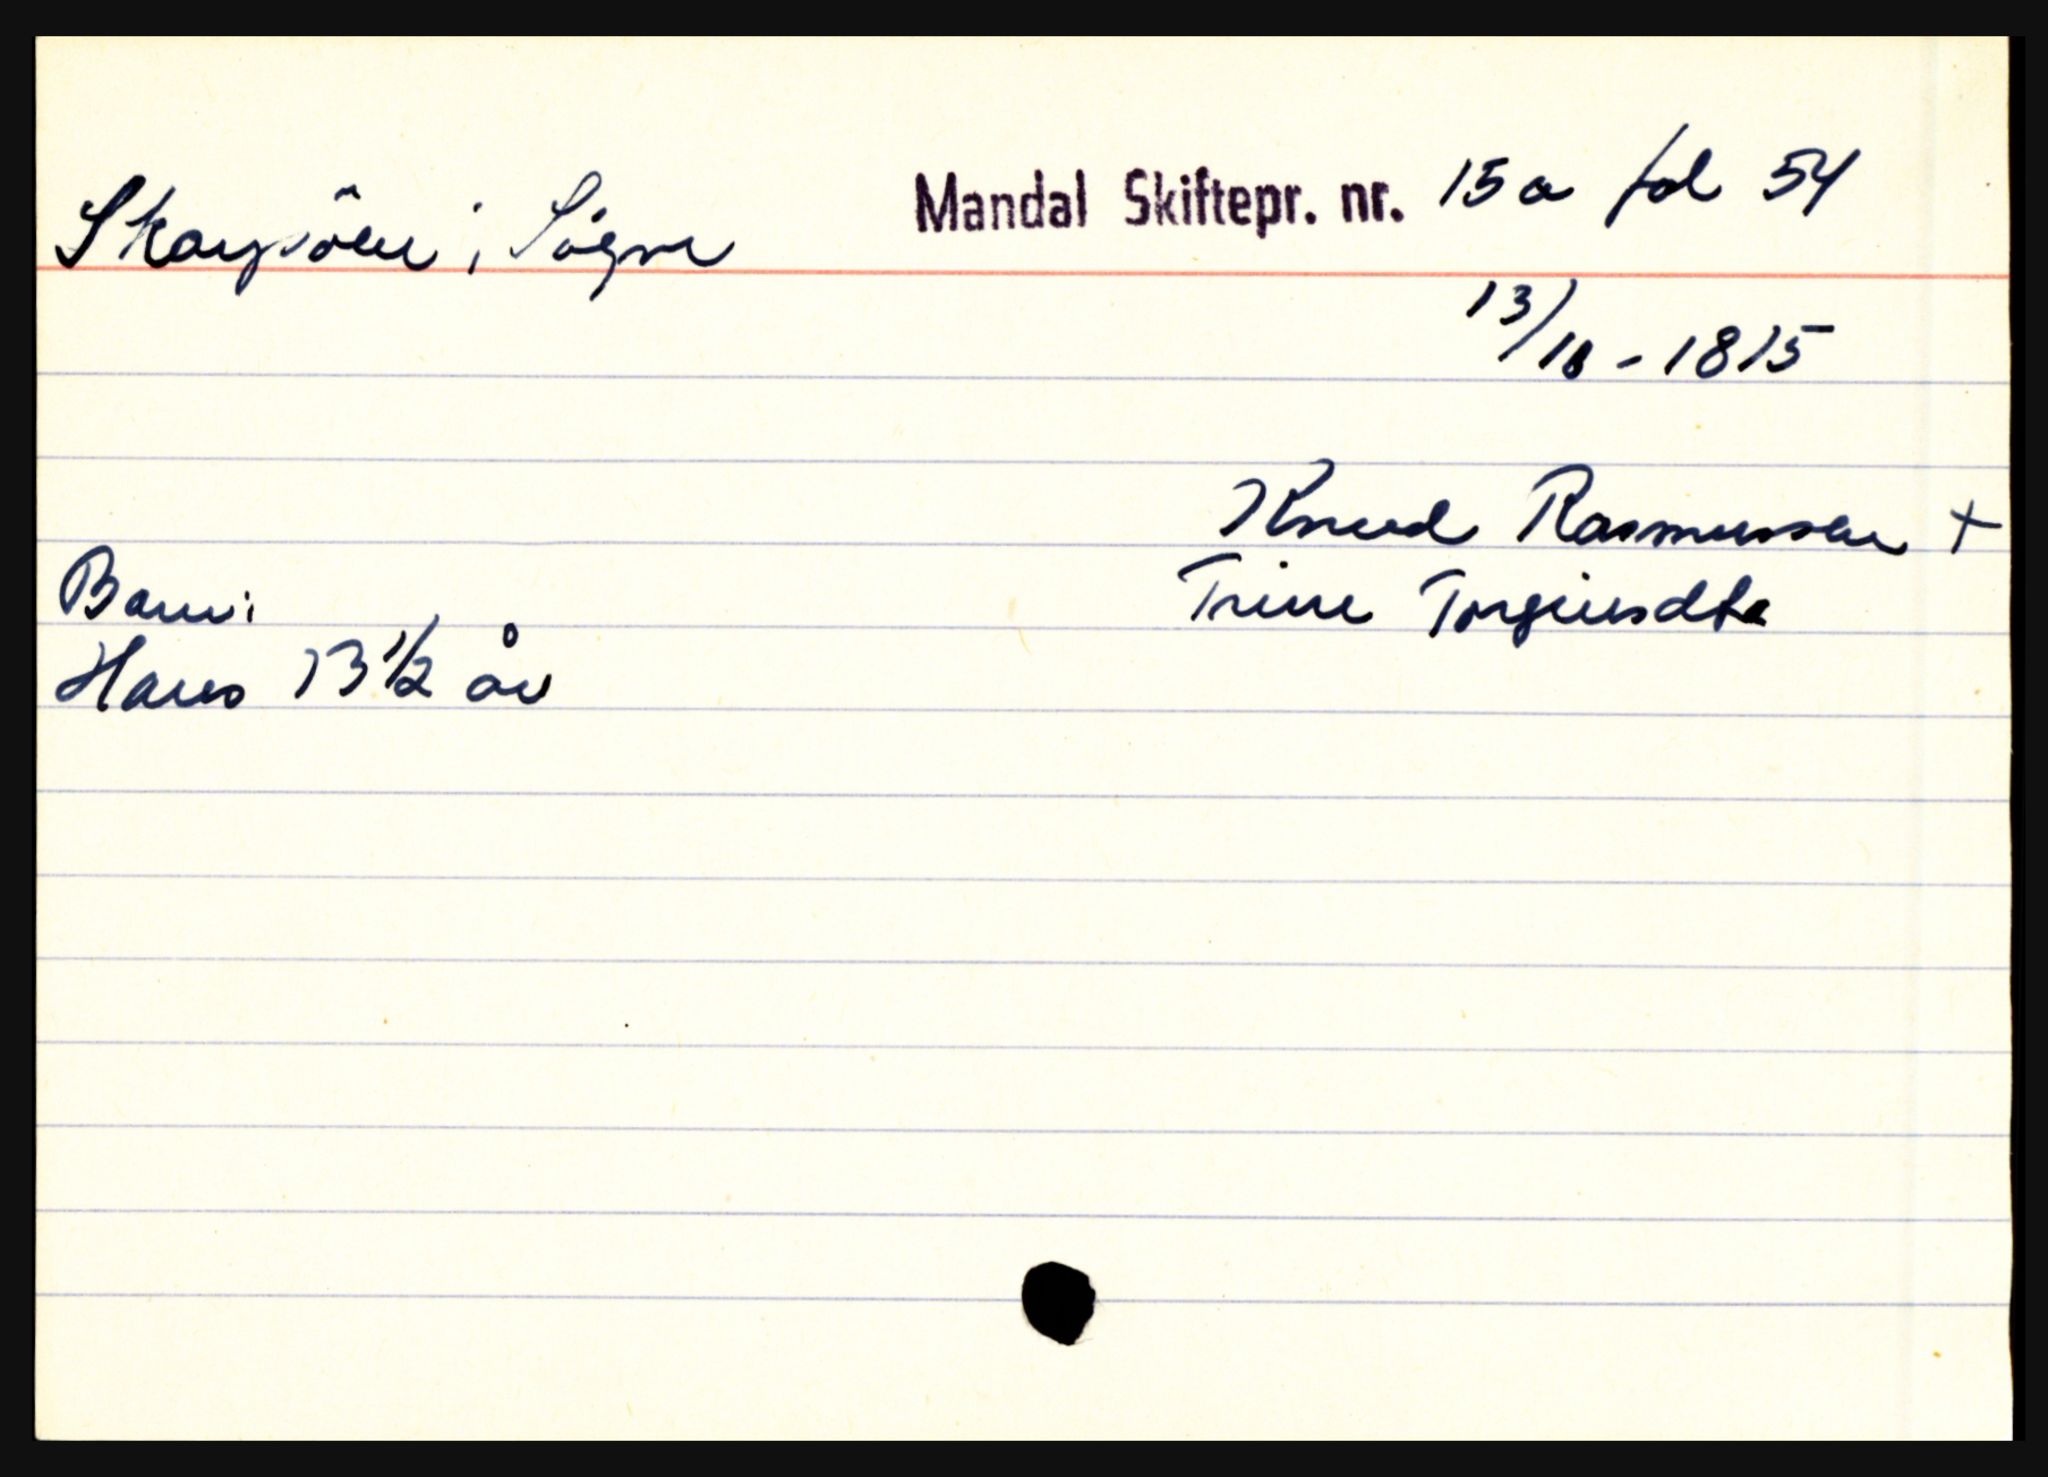 Skarpöen i Sögne Mandal Skiftepr. nr. 15a fol 54
13/10 - 1815
Knud Rasmussen +
Trine Torgiusdtr
Barn:
Hans 13 1/2 år